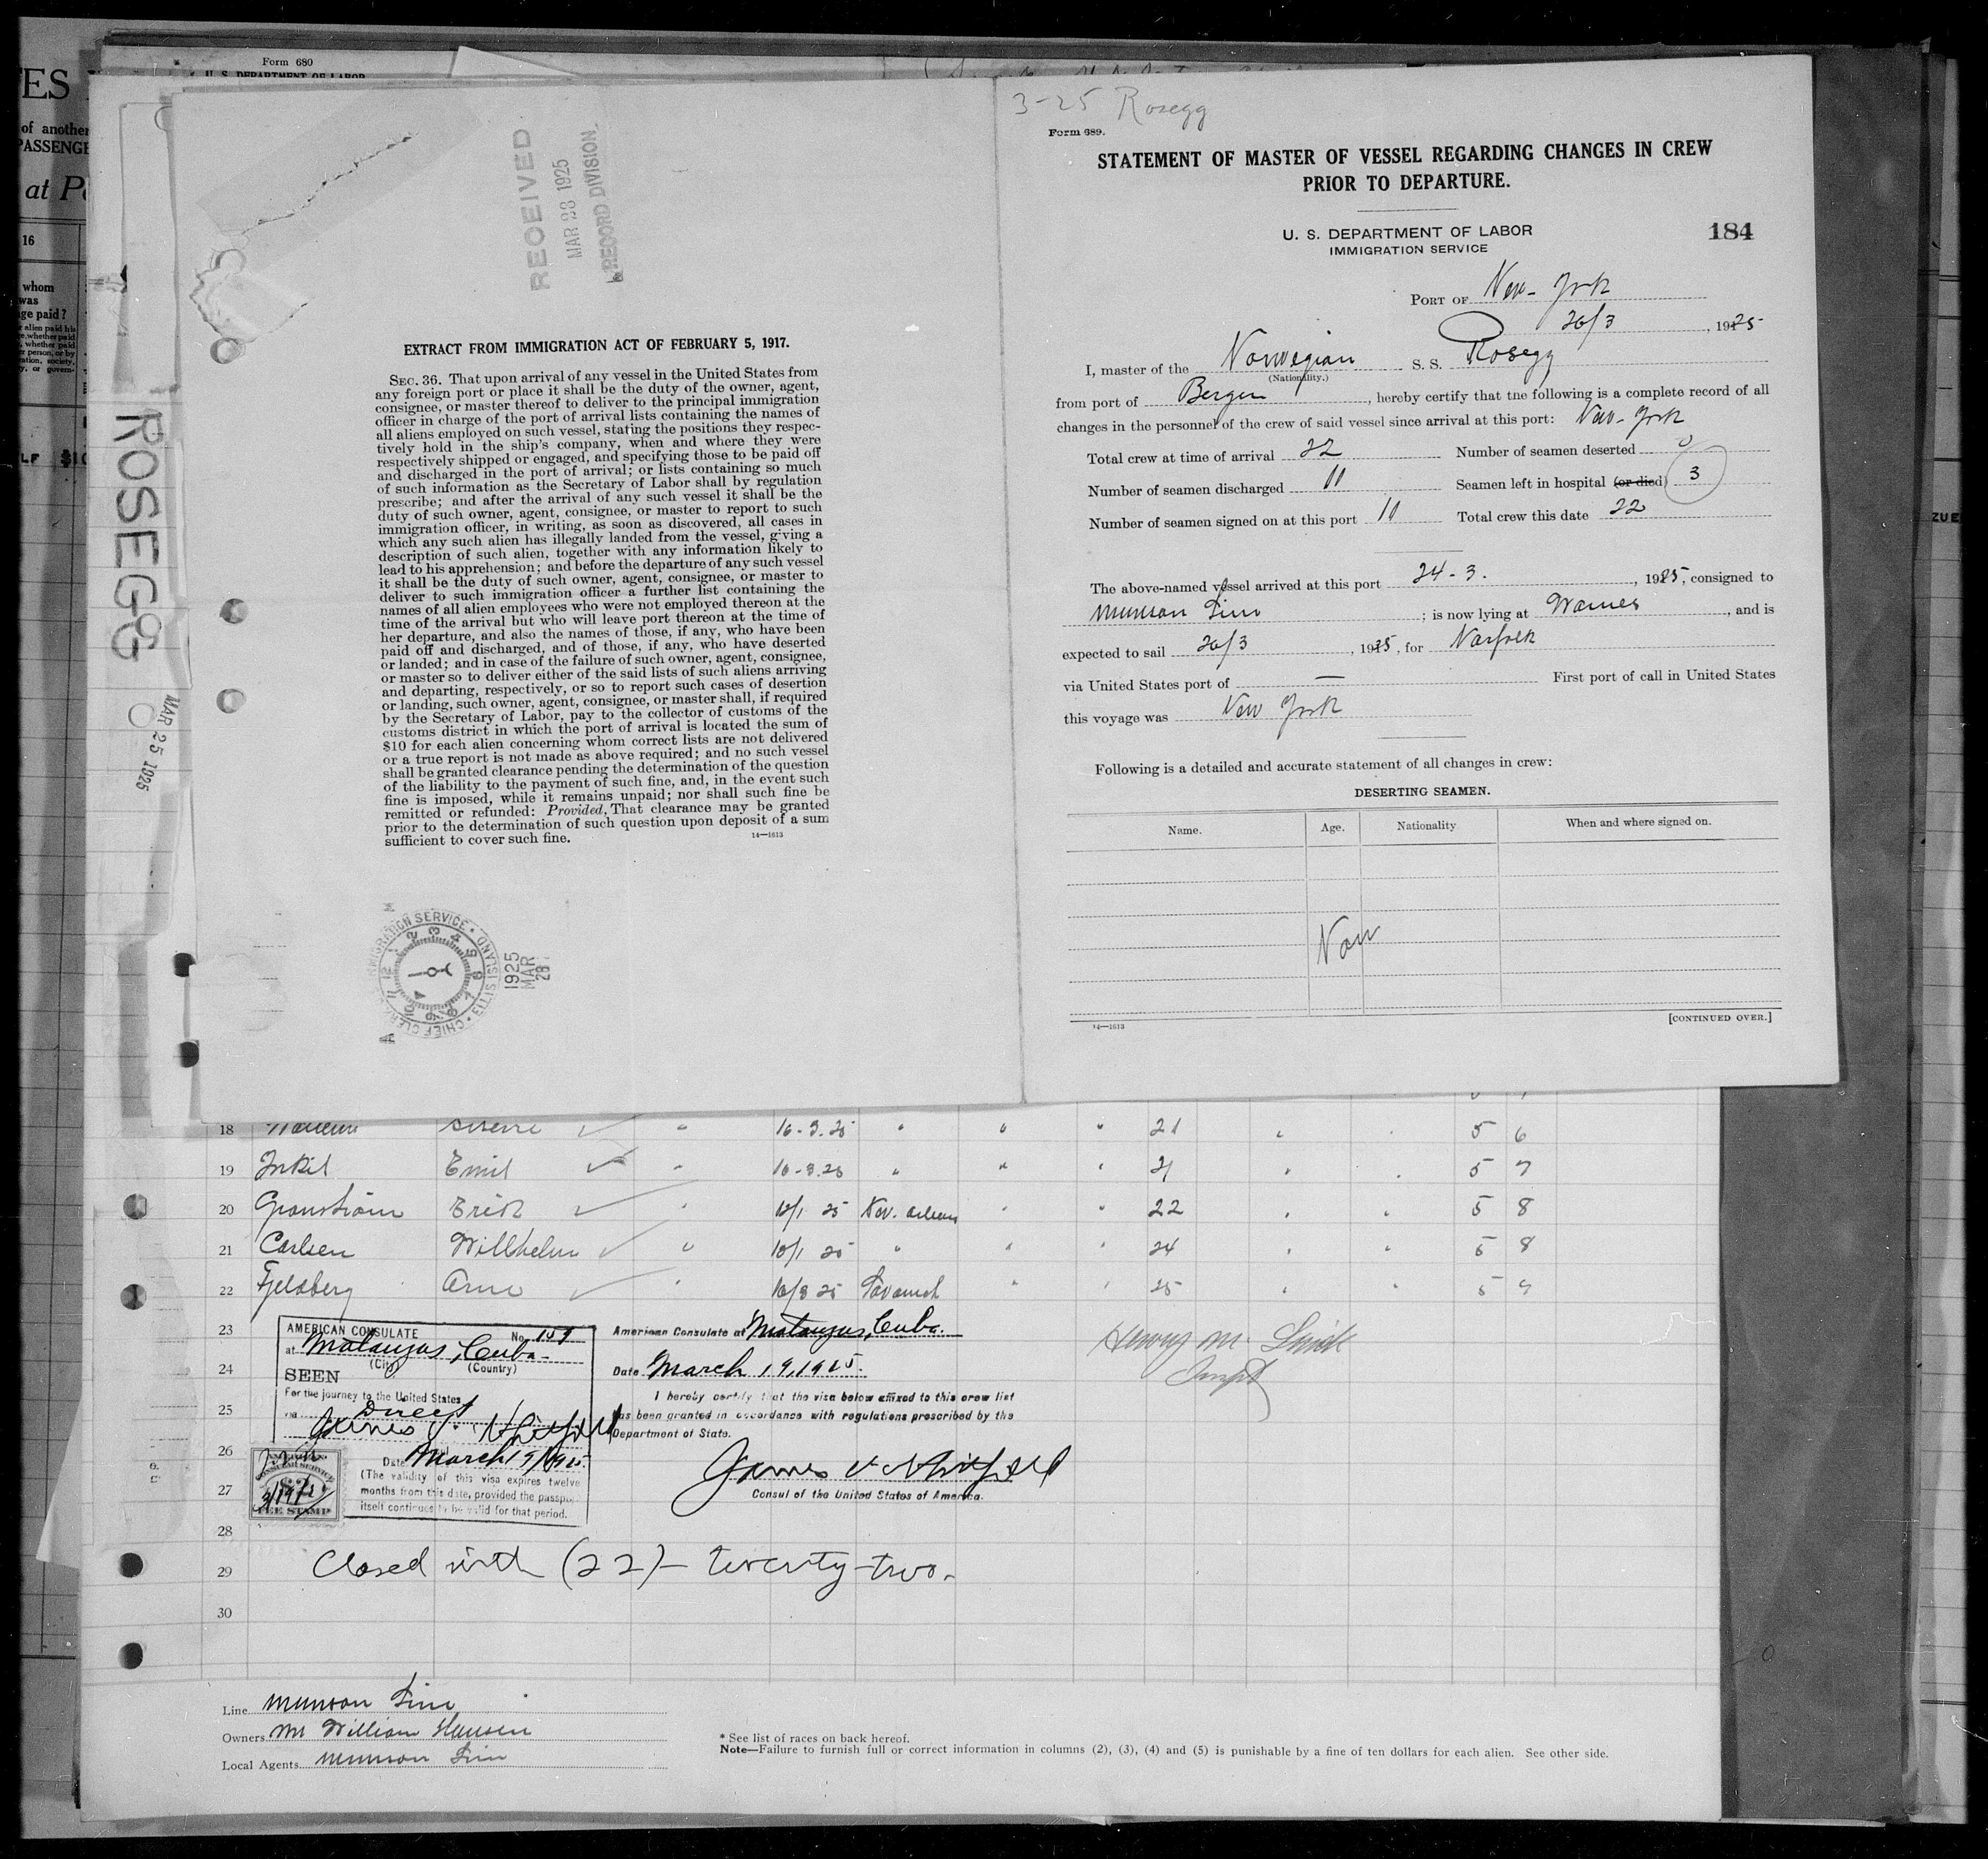 Form 680
U. S. DEPARTMENT OF LABOR
ES
of another
PASSENGE
at P
16
whom
was
ge paid?
LF $10
ROSEGG
MAR 25 1925
RECEIVED
MAR 28 1925
RECORD DIVISION
EXTRACT FROM IMMIGRATION ACT OF FEBRUARY 5, 1917.
SEC. 36. That upon arrival of any vessel in the United States from
any foreign port or place it shall be the duty of the owner, agent,
consignee, or master thereof to deliver to the principal immigration
officer in charge of the port of arrival lists containing the names of
all aliens employed on such vessel, stating the positions they respec-
tively hold in the ship's company, when and where they were
respectively shipped or engaged, and specifying those to be paid off
and discharged in the port of arrival; or lists containing so much
of such information as the Secretary of Labor shall by regulation
prescribe; and after the arrival of any such vessel it shall be the
duty of such owner, agent, consignee, or master to report to such
immigration officer, in writing, as soon as discovered, all cases in
which any such alien has illegally landed from the vessel, giving a
description of such alien, together with any information likely to
lead to his apprehension; and before the departure of any such vessel
it shall be the duty of such owner, agent, consignee, or master to
deliver to such immigration officer a further list containing the
names of all alien employees who were not employed thereon at the
time of the arrival but who will leave port thereon at the time of
her departure, and also the names of those, if any, who have been
paid off and discharged, and of those, if any, who have deserted
or landed; and in case of the failure of such owner, agent, consignee,
or master so to deliver either of the said lists of such aliens arriving
and departing, respectively, or so to report such cases of desertion
or landing, such owner, agent, consignee, or master shall, if required
by the Secretary of Labor, pay to the collector of customs of the
customs district in which the port of arrival is located the sum of
$10 for each alien concerning whom correct lists are not delivered
or a true report is not made as above required; and no such vessel
shall be granted clearance pending the determination of the question
of the liability to the payment of such fine, and, in the event such
fine is imposed, while it remains unpaid; nor shall such fine be
remitted or refunded: Provided, That clearance may be granted
prior to the determination of such question upon deposit of a sum
sufficient to cover such fine. 14—1613
1925
MAR
28
3-25 Rosegg
Form 689.
STATEMENT OF MASTER OF VESSEL REGARDING CHANGES IN CREW
PRIOR TO DEPARTURE.
U. S. DEPARTMENT OF LABOR
IMMIGRATION SERVICE
184
PORT OF New-York
26/3, 1925
I, master of the Norwegian S. S. Rosegg
(Nationality.)
from port of Bergen, hereby certify that the following is a complete record of all
changes in the personnel of the crew of said vessel since arrival at this port: New-York
Total crew at time of arrival 22 Number of seamen deserted 0
Number of seamen discharged 10 Seamen left in hospital (or died) 3
Number of seamen signed on at this port 10 Total crew this date 22
The above-named vessel arrived at this port 24-3., 1925, consigned to
Munson Line; is now lying at , and is
expected to sail 26/3, 1925, for Norfolk
via United States port of — First port of call in United States
this voyage was New York
Following is a detailed and accurate statement of all changes in crew:
DESERTING SEAMEN.
Name. Age. Nationality When and where signed on.
Non
14—1613 [CONTINUED OVER.]
ZUE
18 Sverre " 16-3.25 " " " 21 " " 5 6
19 Emil " 16-3.25 " " " 21 " " 5 7
20 Granström Erik " 10/1 25 New. Orleans " " 22 " " 5 8
21 Carlsen Willhelm " 10/1 25 " " " 24 " " 5 8
22 Fjeldberg Arne " 16/3 25 Savannah " " 25 " " 5 7
23
24
25
26
27
28
29
30
AMERICAN CONSULATE No.
at Matanzas, Cuba
(City) (Country)
SEEN
For the journey to the United States
via Direct
James V. Whitfield
Date March 19/1925
(The validity of this visa expires twelve
months from this date, provided the passport
itself continues to be valid for that period.
CONSULAR SERVICE
FEE STAMP
American Consulate at Matanzas, Cuba.
Date March 19, 1925.
I hereby certify that the visa below affixed to this crew list
has been granted in accordance with regulations prescribed by the
Department of State.
James V. Whitfield
Consul of the United States of America.
Henry M.
Inspt
Closed with (22)- twenty-two.
Line Munson Line
Owners Mr William Hansen
Local Agents Munson Line
* See list of races on back hereof.
Note—Failure to furnish full or correct information in columns (2), (3), (4) and (5) is punishable by a fine of ten dollars for each alien. See other side.